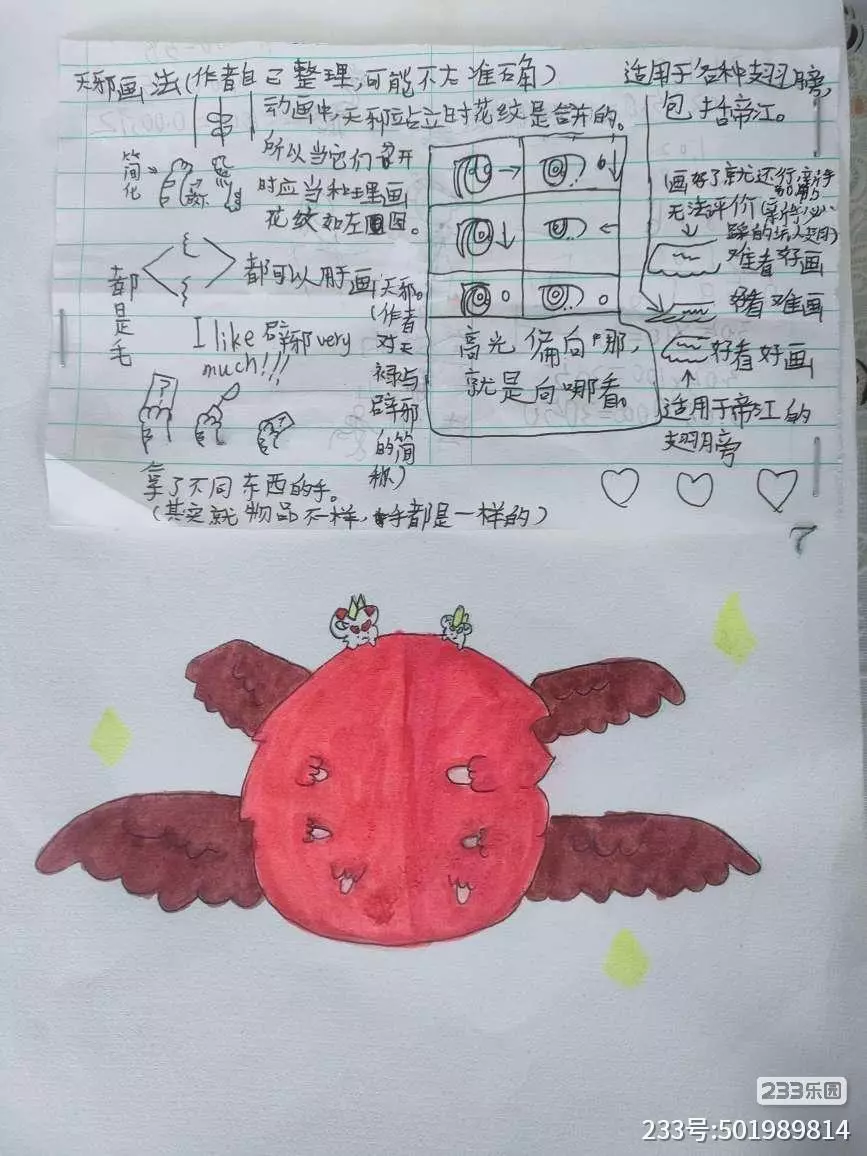 天邪画法(作者自己整理,可能不太准确)
动画中,天邪站立时花纹是合并的。
所以当它们召开
时应当和理画
花纹如左图。
简化
都是毛
都可以用于画天邪。
(作者对天禄与辟邪的简称)
I like 辟邪 very
much!!!
?
?
拿了不同东西的手。
(其实就物品不一样,手都是一样的)
高光偏向哪,
就是向哪看。
适用于各种翅膀,
包括帝江。
(画好了就还行,亲手
无法评价(亲传必
踩的坑
难看好画
好看难画
好看好画
适用于帝江的
翅膀
7
233乐园
233号:501989814